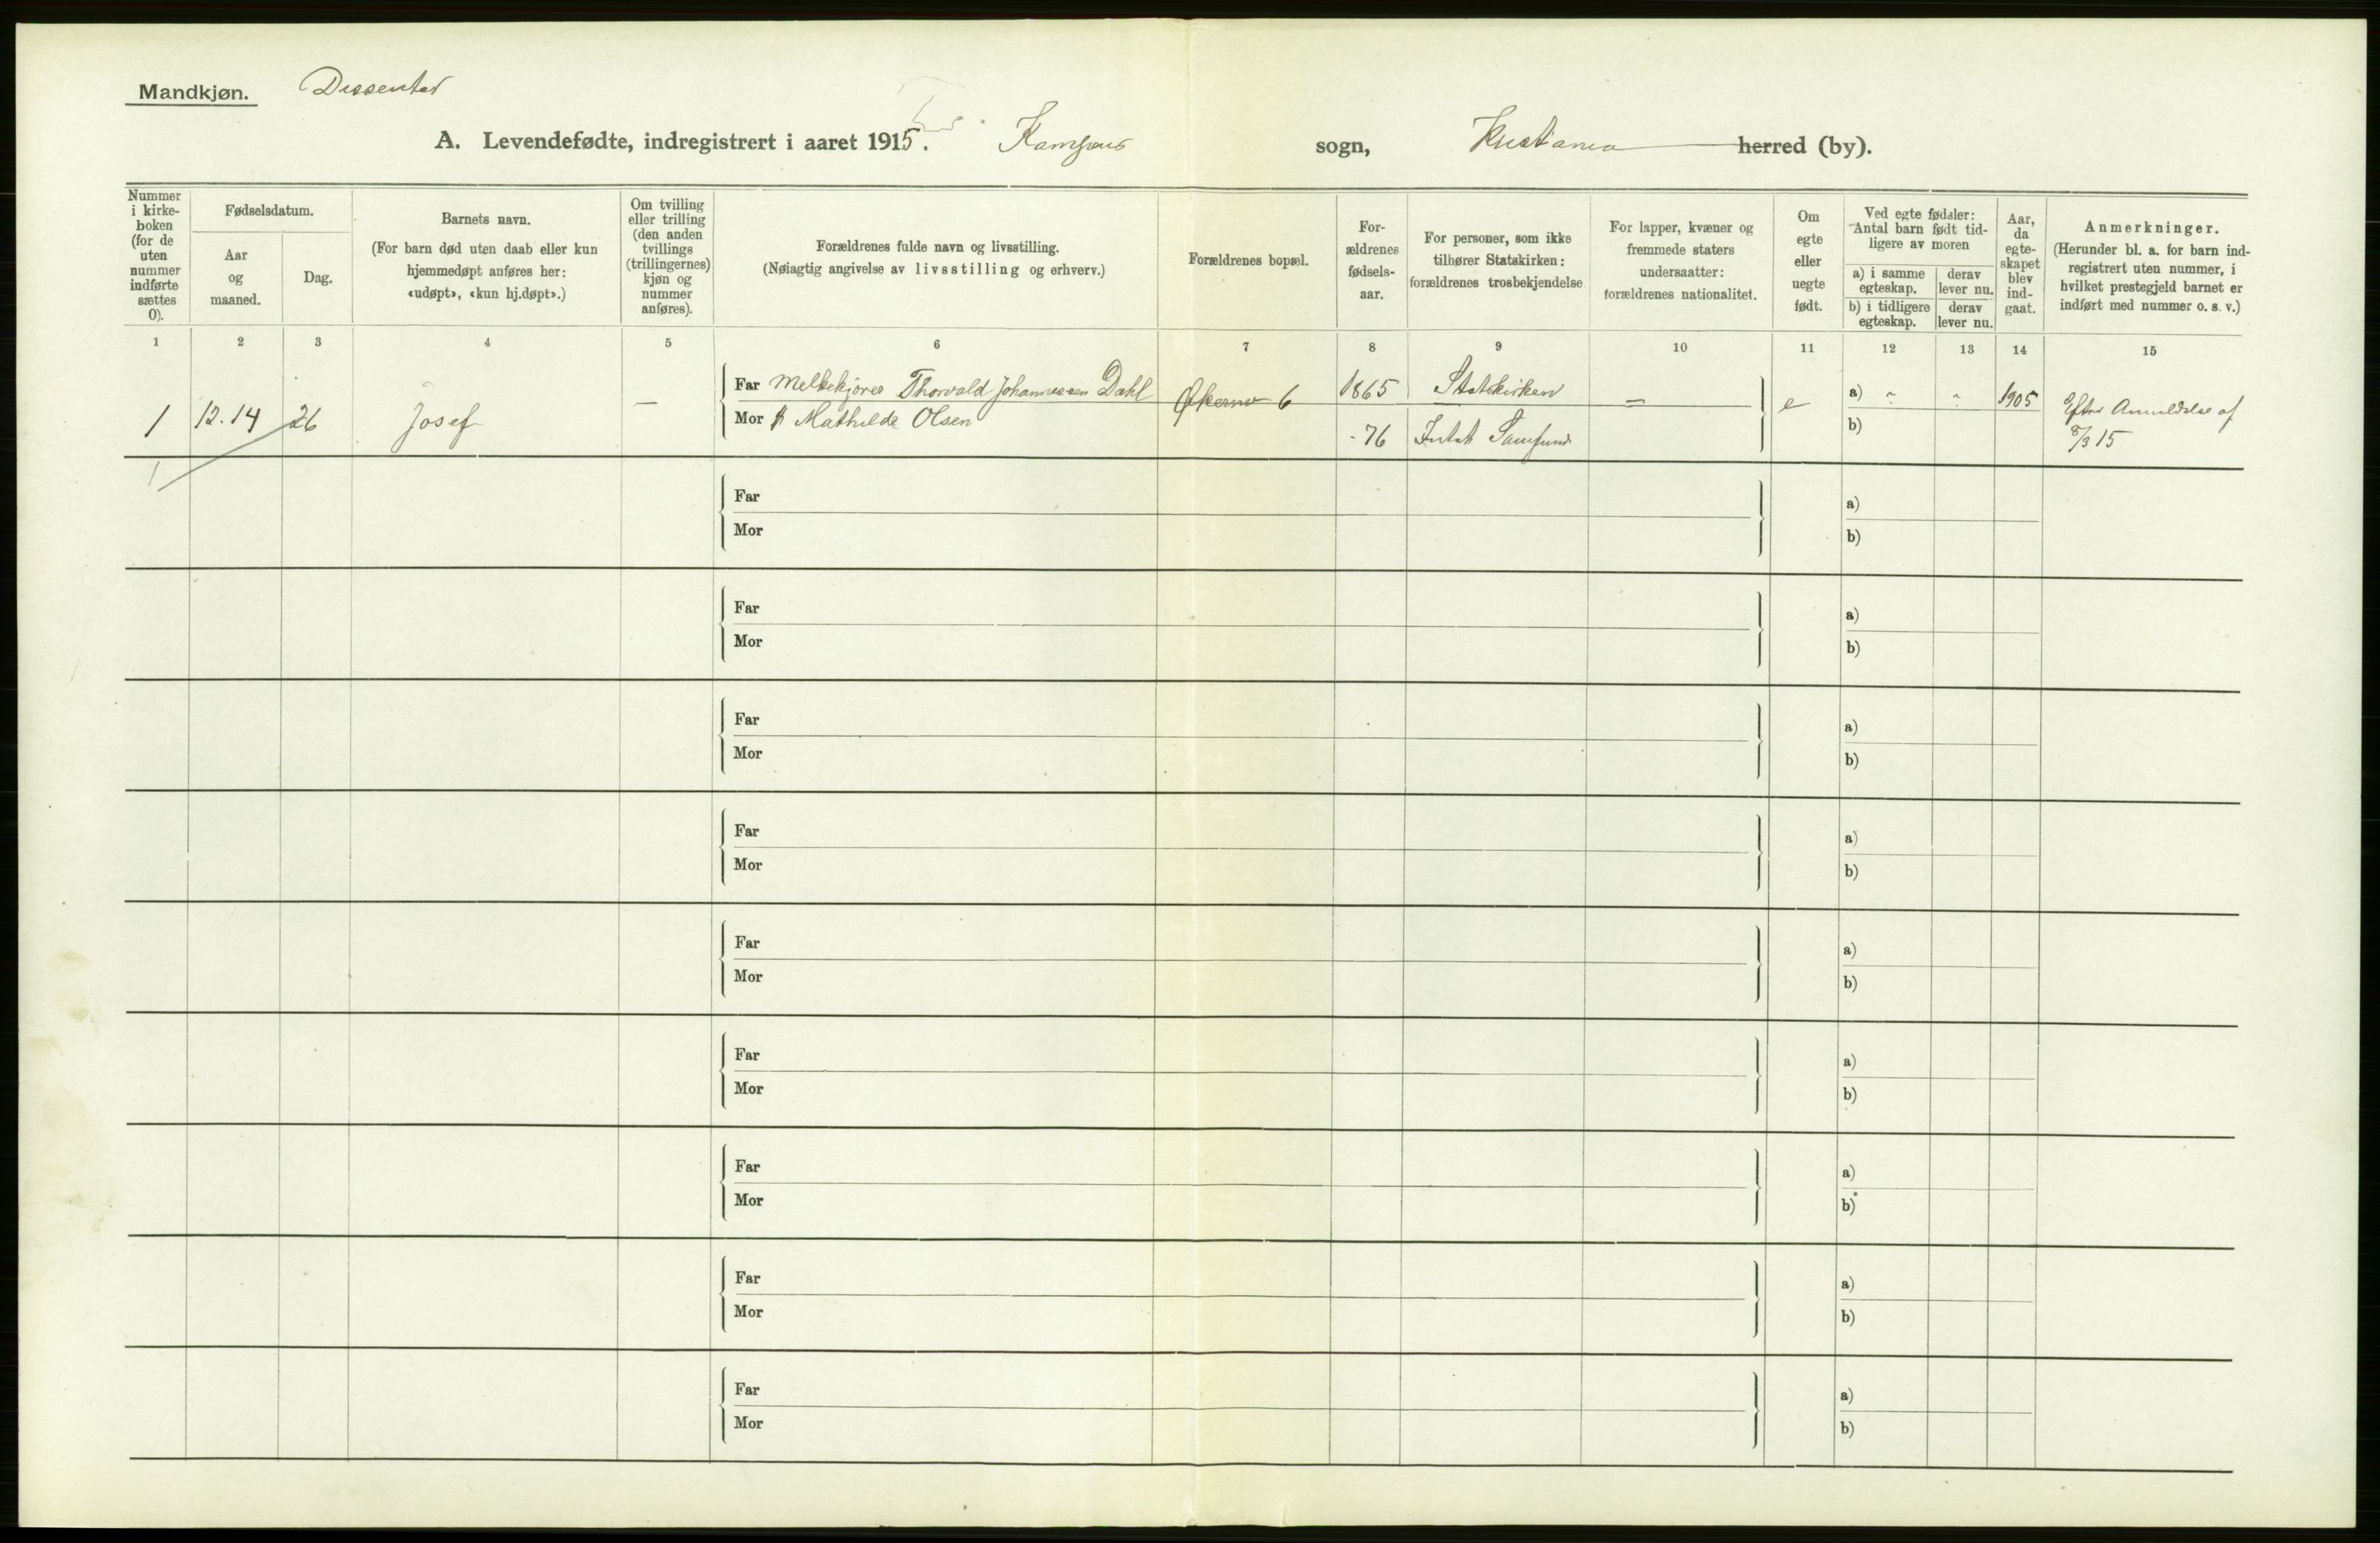 Mandkjøn. Dissenter
A. Levendefødte, indregistrert i aaret 1915. Kampens sogn, Kristiania herred (by).
Nummer i kirke-boken (for de uten nummer indførte sættes 0).
Fødselsdatum.
Aar og maaned.
Dag.
Barnets navn.
(For barn død uten daab eller kun hjemmedøpt anføres her: «udøpt», «kun hj.døpt».)
Om tvilling eller trilling (den anden tvillings (trillingernes) kjøn og nummer anføres).
Forældrenes fulde navn og livsstilling.
(Nøiagtig angivelse av livsstilling og erhverv.)
Forældrenes bopæl.
For-ældrenes fødsels-aar.
For personer, som ikke tilhører Statskirken: forældrenes trosbekjendelse
For lapper, kvæner og fremmede staters undersaatter: forældrenes nationalitet.
Om egte eller uegte født.
Ved egte fødsler: Antal barn født tid-ligere av moren
a) i samme egteskap.
derav lever nu.
b) i tidligere egteskap.
derav lever nu.
Aar, da egte-skapet blev ind-gaat.
Anmerkninger.
(Herunder bl. a. for barn ind-registrert uten nummer, i hvilket prestegjeld barnet er indført med nummer o. s. v.)
1 2 3 4 5 6 7 8 9 10 11 12 13 14 15
Far Melkekjører Thorvald Johannessen Dahl Økernv 6 1865 Statskirken — e a) " " 1905 Efter Anmeldelse af
1 12.14 26 Josef — Mor Mathilde Olsen -76 Samfund b) 8/3 15
1
Far a)
Mor b)
Far a)
Mor b)
Far a)
Mor b)
Far a)
Mor b)
Far a)
Mor b)
Far a)
Mor b)
Far a)
Mor b)
Far a)
Mor b)
Far a)
Mor b)